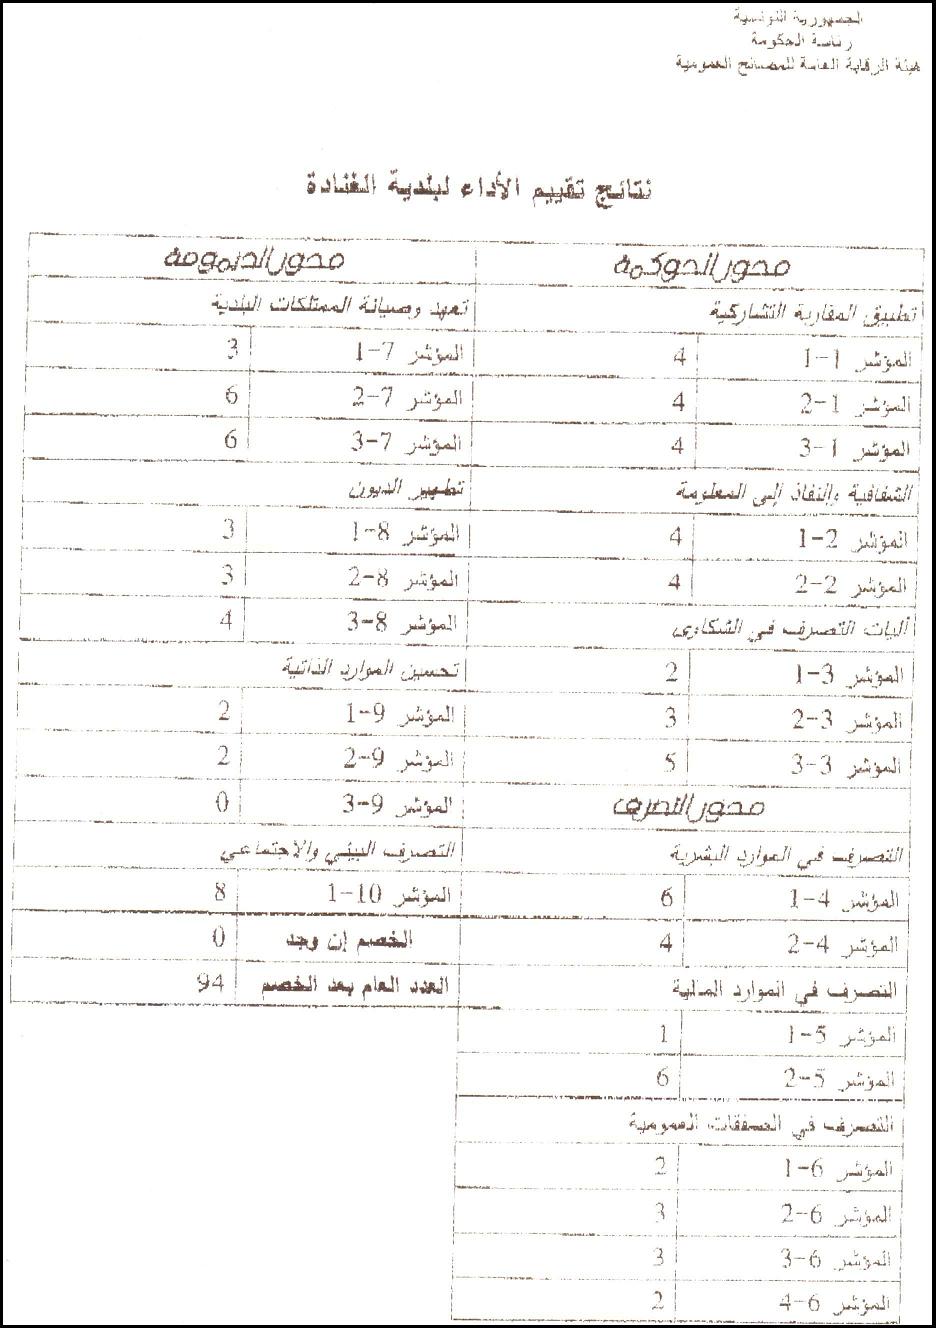 الجمهورية التونسية
رئاسة الحكومة
هيئة الرقابة العامة للمصالح العمومية
نتائج تقييم الأداء لبلدية الغنادة
محور الحوكمة
تطبيق المقاربة التشاركية
المؤشر 1-1 4
المؤشر 1-2 4
المؤشر 1-3 4
الشفافية والنفاذ إلى المعلومة
المؤشر 2-1 4
المؤشر 2-2 4
آليات التصرف في الشكاوى
المؤشر 3-1 2
المؤشر 3-2 3
المؤشر 3-3 5
محور التصرف
التصرف في الموارد البشرية
المؤشر 4-1 6
المؤشر 4-2 4
التصرف في الموارد المالية
المؤشر 5-1 1
المؤشر 5-2 6
التصرف في الصفقات العمومية
المؤشر 6-1 2
المؤشر 6-2 3
المؤشر 6-3 3
المؤشر 6-4 2
محور الديمومة
تعهد وصيانة الممتلكات البلدية
المؤشر 7-1 3
المؤشر 7-2 6
المؤشر 7-3 6
تطهير الديون
المؤشر 8-1 3
المؤشر 8-2 3
المؤشر 8-3 4
تحسين الموارد الذاتية
المؤشر 9-1 2
المؤشر 9-2 2
المؤشر 9-3 0
التصرف البيئي والاجتماعي
المؤشر 10-1 8
الخصم إن وجد 0
العدد العام بعد الخصم 94